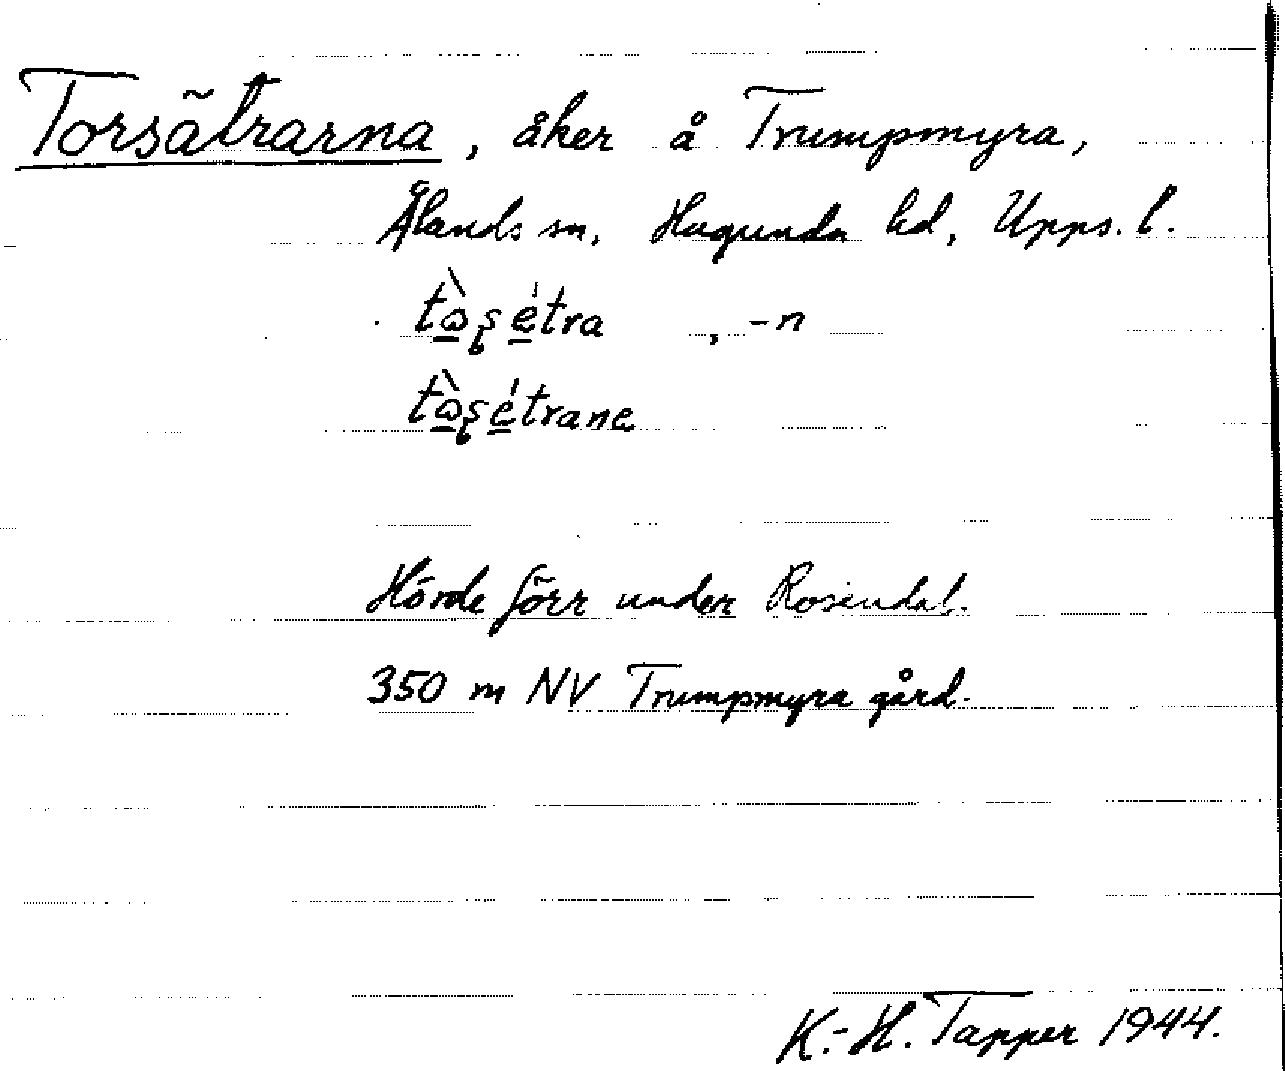 Torsätrarna, åker å Trumpmyra,
Ålands sn, Hagunda hd, Upps. l.
tò̱ʂé̱tra , -n
tò̱ʂé̱trane
Hörde förr under Rosendal.
350 m NV Trumpmyra gård.
K.-H. Tapper 1944.